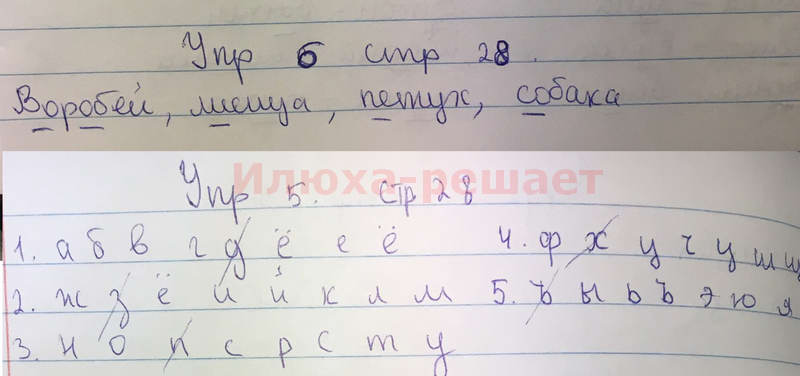 Упр 6 стр 28.
Воробей, лисица, петух, собака
Илюха-решает
Упр 5. стр 28
1. а б в г д ё е ё 4. ф х ц ч у ш щ
2. ж з ё и й к л м 5. ъ ы ь ъ э ю я
3. н о п с р с т у